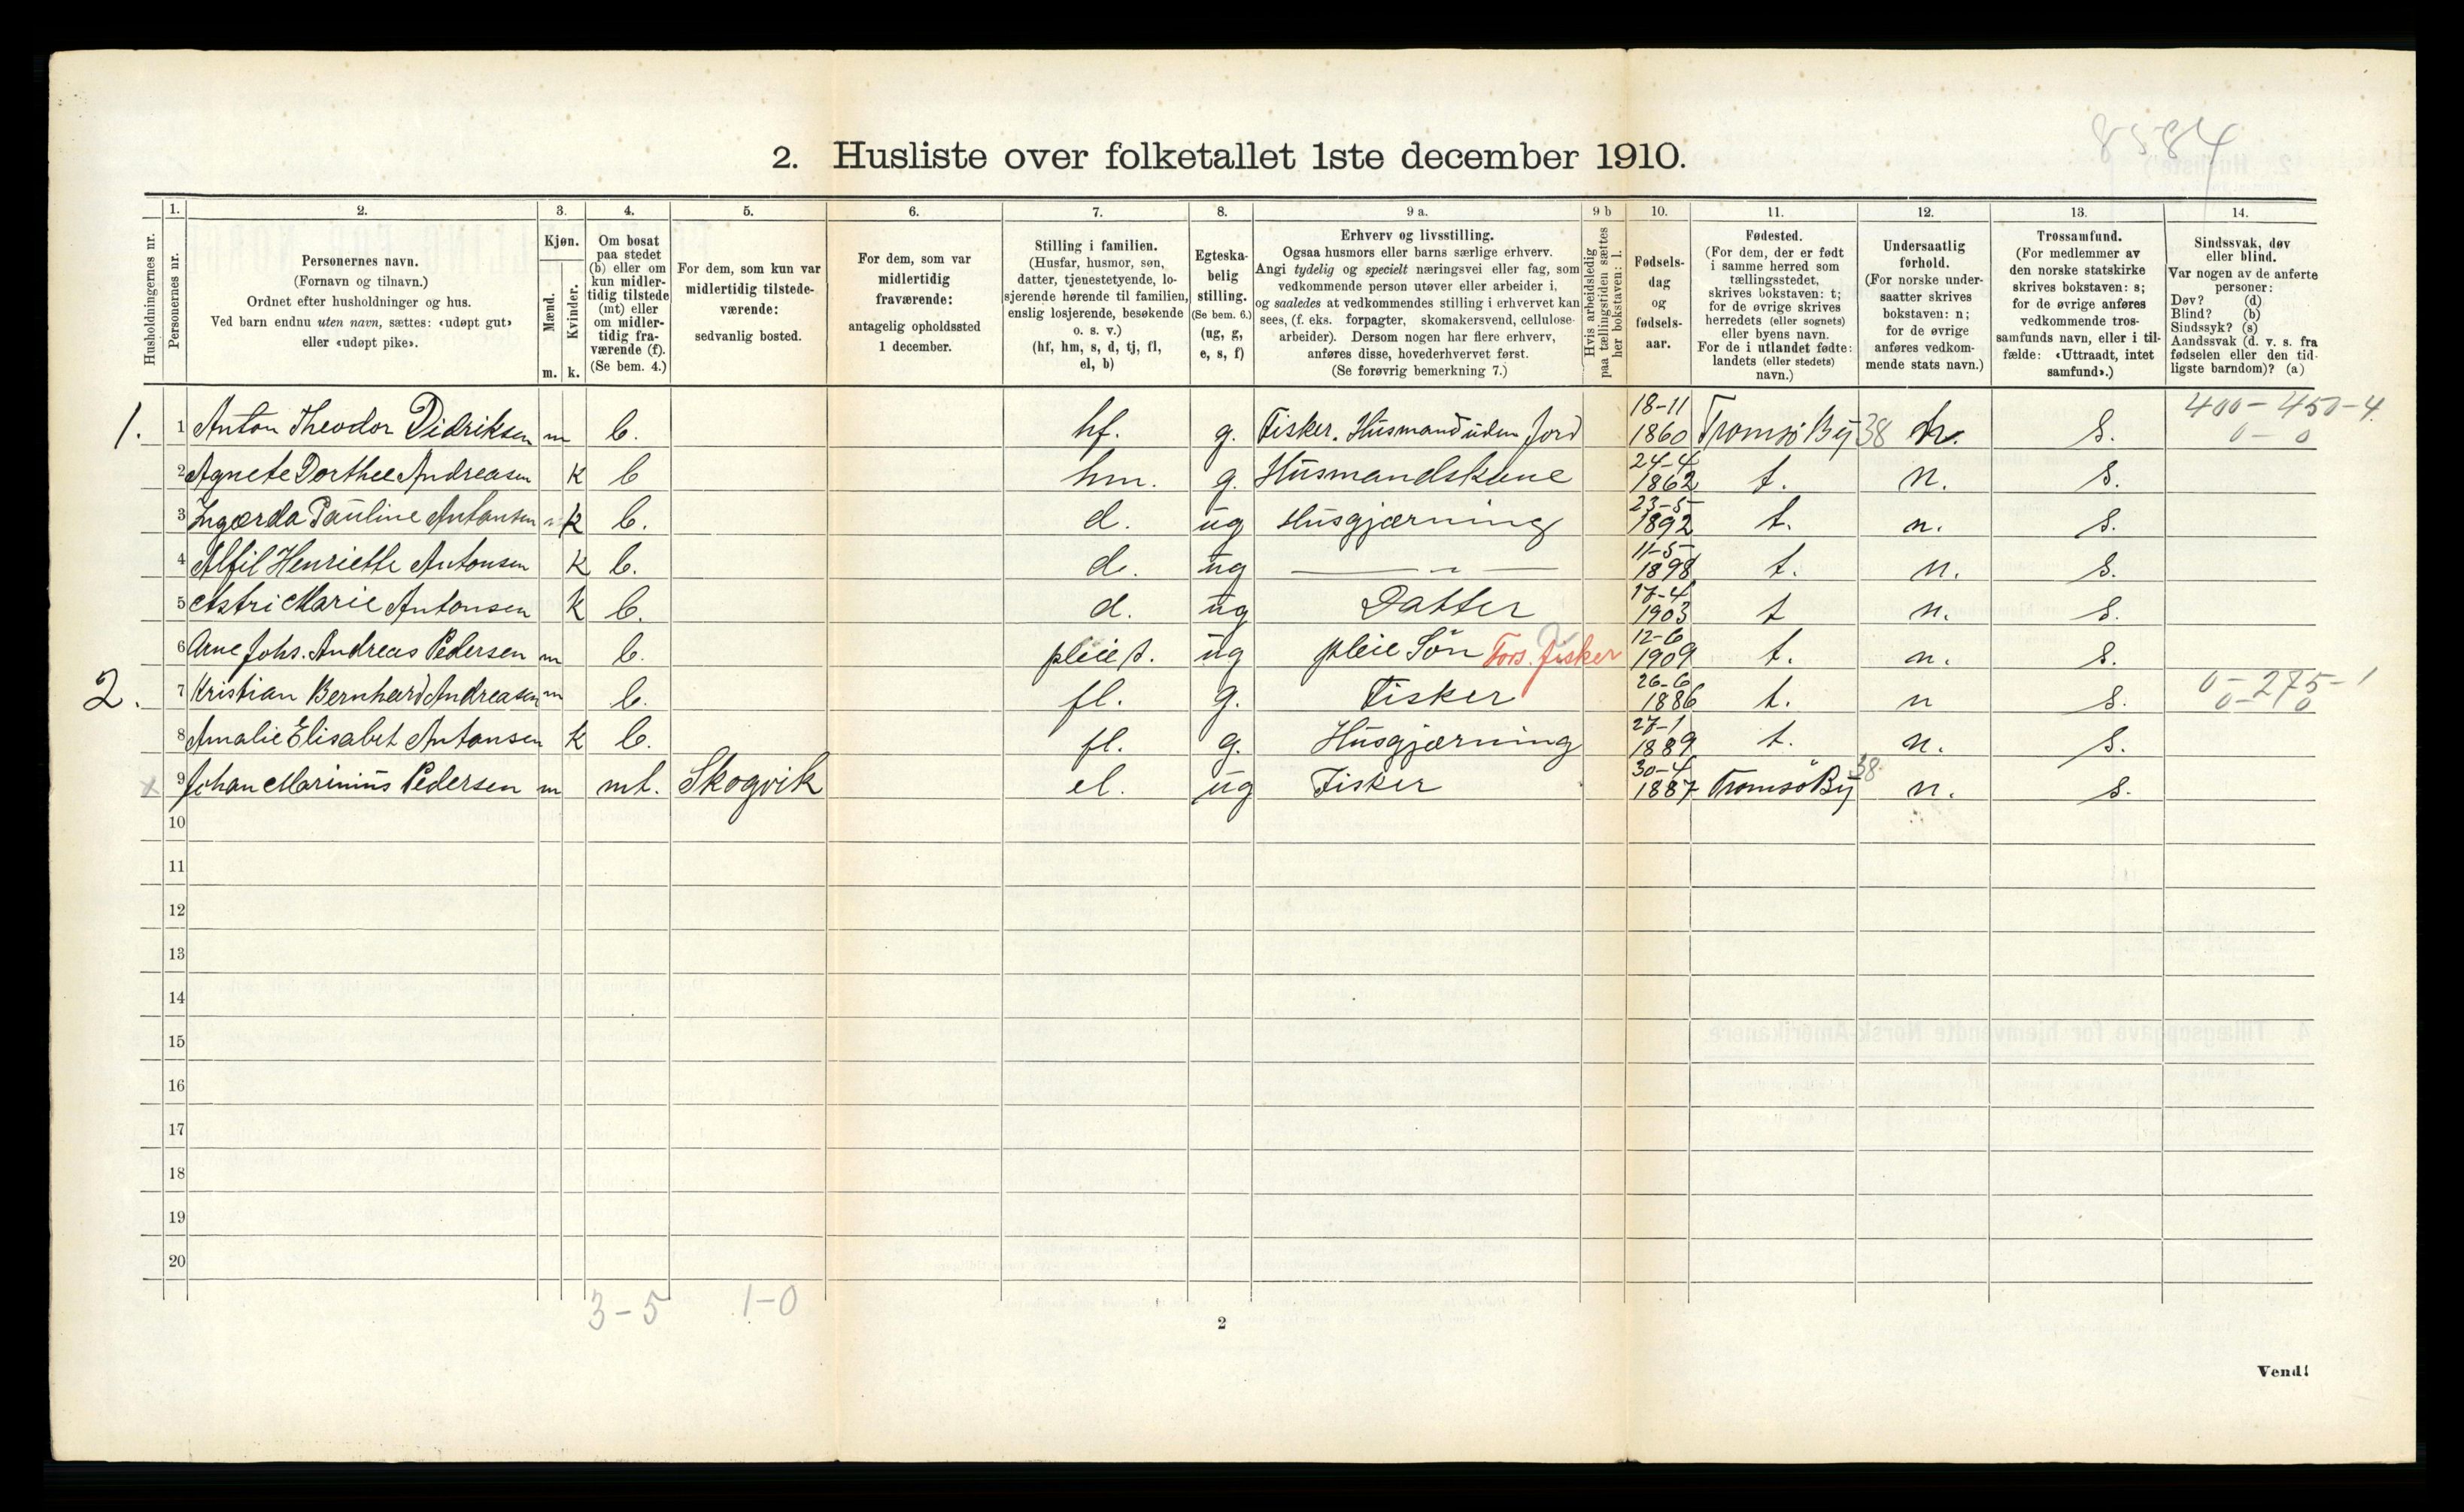 8584
2. Husliste over folketallet 1ste december 1910.
Husholdningernes nr.
1. Personernes nr.
2. Personernes navn.
(Fornavn og tilnavn.)
Ordnet efter husholdninger og hus.
Ved barn endnu uten navn, sættes: «udøpt gut»
eller «udøpt pike».
3. Kjøn.
Mænd. Kvinder.
m. k.
4. Om bosat
paa stedet
(b) eller om
kun midler-
tidig tilstede
(mt) eller
om midler-
tidig fra-
værende (f).
(Se bem. 4.)
5. For dem, som kun var
midlertidig tilstede-
værende:
sedvanlig bosted.
6. For dem, som var
midlertidig
fraværende:
antagelig opholdssted
1 december.
7. Stilling i familien.
(Husfar, husmor, søn,
datter, tjenestetyende, lo-
sjerende hørende til familien,
enslig losjerende, besøkende
o. s. v.)
(hf, hm, s, d, tj, fl,
el, b)
8. Egteska-
belig
stilling.
(Se bem. 6.)
(ug, g,
e, s, f)
9 a. Erhverv og livsstilling.
Ogsaa husmors eller barns særlige erhverv.
Angi tydelig og specielt næringsvei eller fag, som
vedkommende person utøver eller arbeider i,
og saaledes at vedkommendes stilling i erhvervet kan
sees, (f. eks. forpagter, skomakersvend, cellulose-
arbeider). Dersom nogen har flere erhverv,
anføres disse, hovederhvervet først.
(Se forøvrig bemerkning 7.)
9 b Hvis arbeidsledig
paa tællingstiden sættes
her bokstaven: l.
10. Fødsels-
dag
og
fødsels-
aar.
11. Fødested.
(For dem, der er født
i samme herred som
tællingsstedet,
skrives bokstaven: t;
for de øvrige skrives
herredets (eller sognets)
eller byens navn.
For de i utlandet fødte:
landets (eller stedets)
navn.)
12. Undersaatlig
forhold.
(For norske under-
saatter skrives
bokstaven: n;
for de øvrige
anføres vedkom-
mende stats navn.)
13. Trossamfund.
(For medlemmer av
den norske statskirke
skrives bokstaven: s;
for de øvrige anføres
vedkommende tros-
samfunds navn, eller i til-
fælde: «Uttraadt, intet
samfund».)
14. Sindssvak, døv
eller blind.
Var nogen av de anførte
personer:
Døv? (d)
Blind? (b)
Sindssyk? (s)
Aandssvak (d. v. s. fra
fødselen eller den tid-
ligste barndom)? (a)
1. 1 Anton Theodor Didriksen m b. hf. g. Fisker. Husmand uden Jord 18-11 1860 Tromsö By 38 n. s. 400-450-4. 0-0
2 Agnete Dorthee Andreasen k b hm. g. Husmandskone 24-4 1862 t. n. s.
3 Ingærda Pauline Antonsen k b. d. ug Husgjærning 23-5- 1892 t. n. s.
4 Alfil Henriette Antonsen k b. d. ug — " — 11-5- 1898 t. n. s.
5 Astri Marie Antonsen k b. d. ug Datter 17-4 1903 t n. s.
6 Arne Johs. Andreas Pedersen m b. pleie s. ug pleie Sön Fors. fisker 12-6 1909 t. n. s.
2. 7 Kristian Bernhard Andreasen m b. fl. g. Fisker 26-6 1886 t. n s. 0-275-1 0-0
8 Amalie Elisabet Antonsen k b. fl. g. Husgjærning 27-1 1889 t. n. s.
x 9 Johan Marinius Pedersen m mt. Skogvik el. ug Fisker 30-4 1887 Tromsö By 38 n. s.
10
11
12
13
14
15
16
17
18
19
20
3-5 1-0
2
Vend!